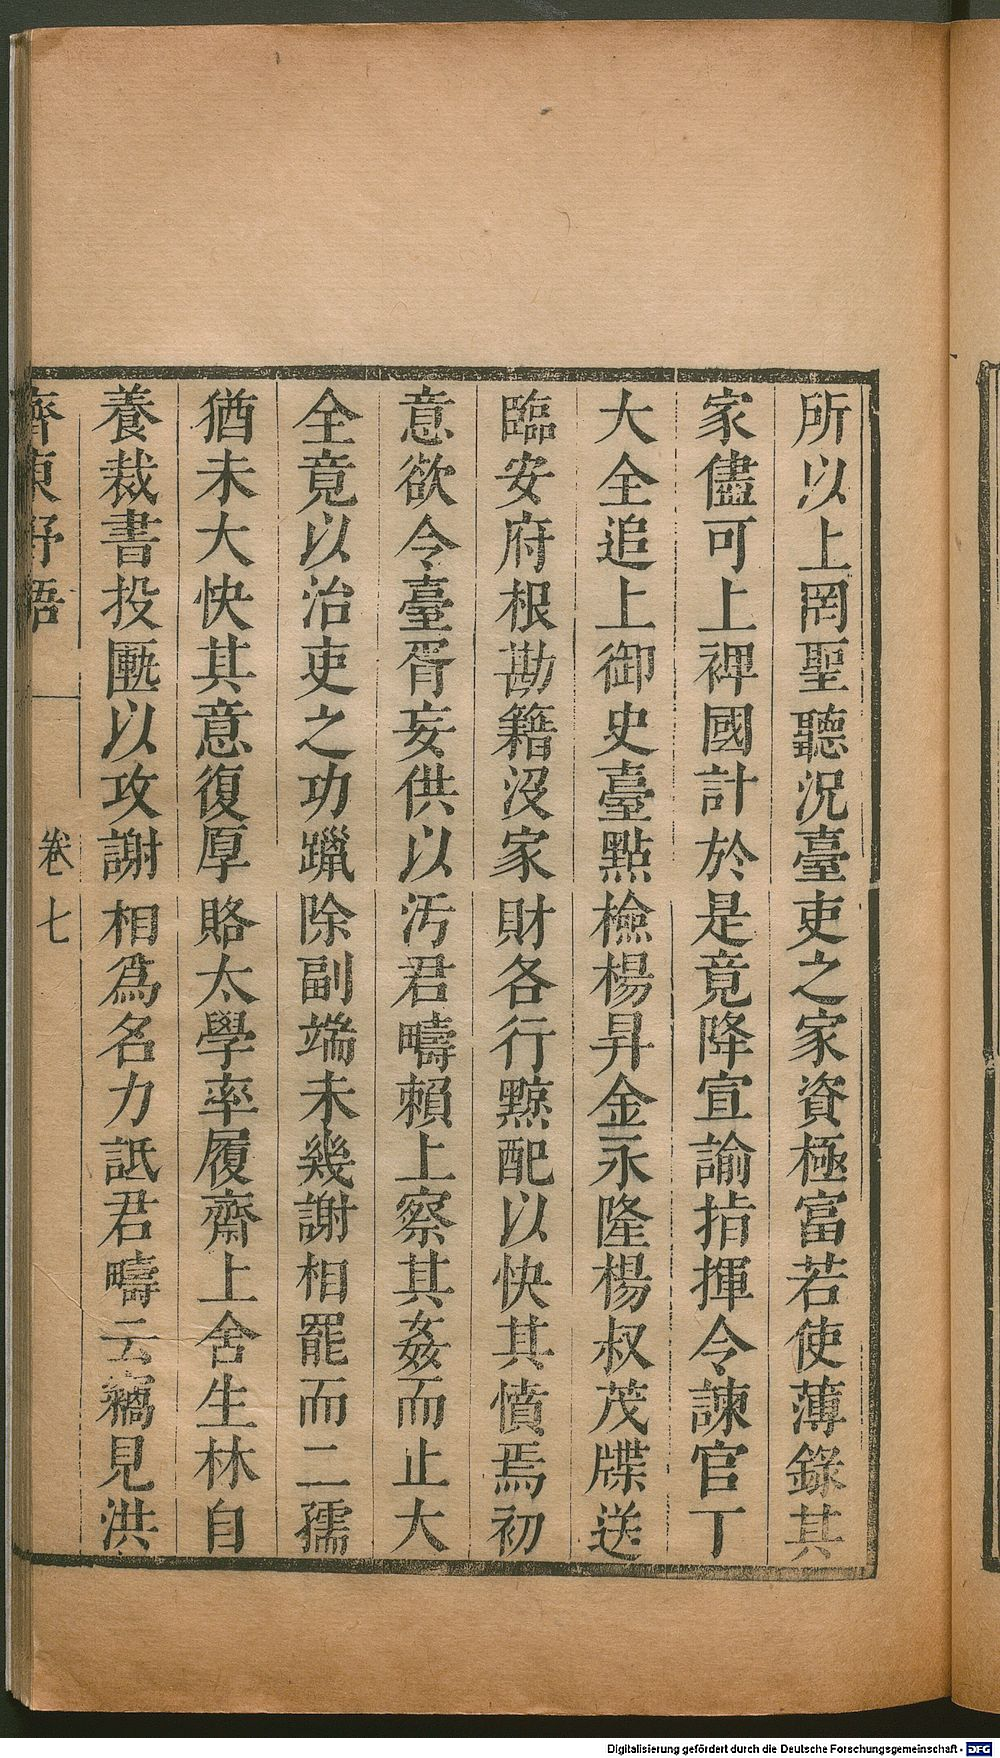 所以上罔聖聽況臺吏之家資極富若使薄錄其
家儘可上裨國計於是竟降宣諭指揮令諫官丁
大全追上御史臺點檢楊昇金永隆楊叔茂牒送
臨安府根勘籍沒家財各行黥配以快其憤焉初
意欲令臺胥妄供以汚君疇賴上察其姦而止大
全竟以治吏之功躐除副端未幾謝相罷而二孺
猶未大快其意復厚賂太學率履齋上舍生林自
養裁書投匭以攻謝相爲名力詆君疇云竊見洪
齊東野語
卷七
Digitalisierung gefördert durch die Deutsche Forschungsgemeinschaft - DFG